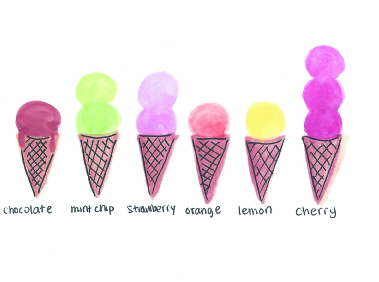 chocolate mint chip strawberry orange lemon cherry